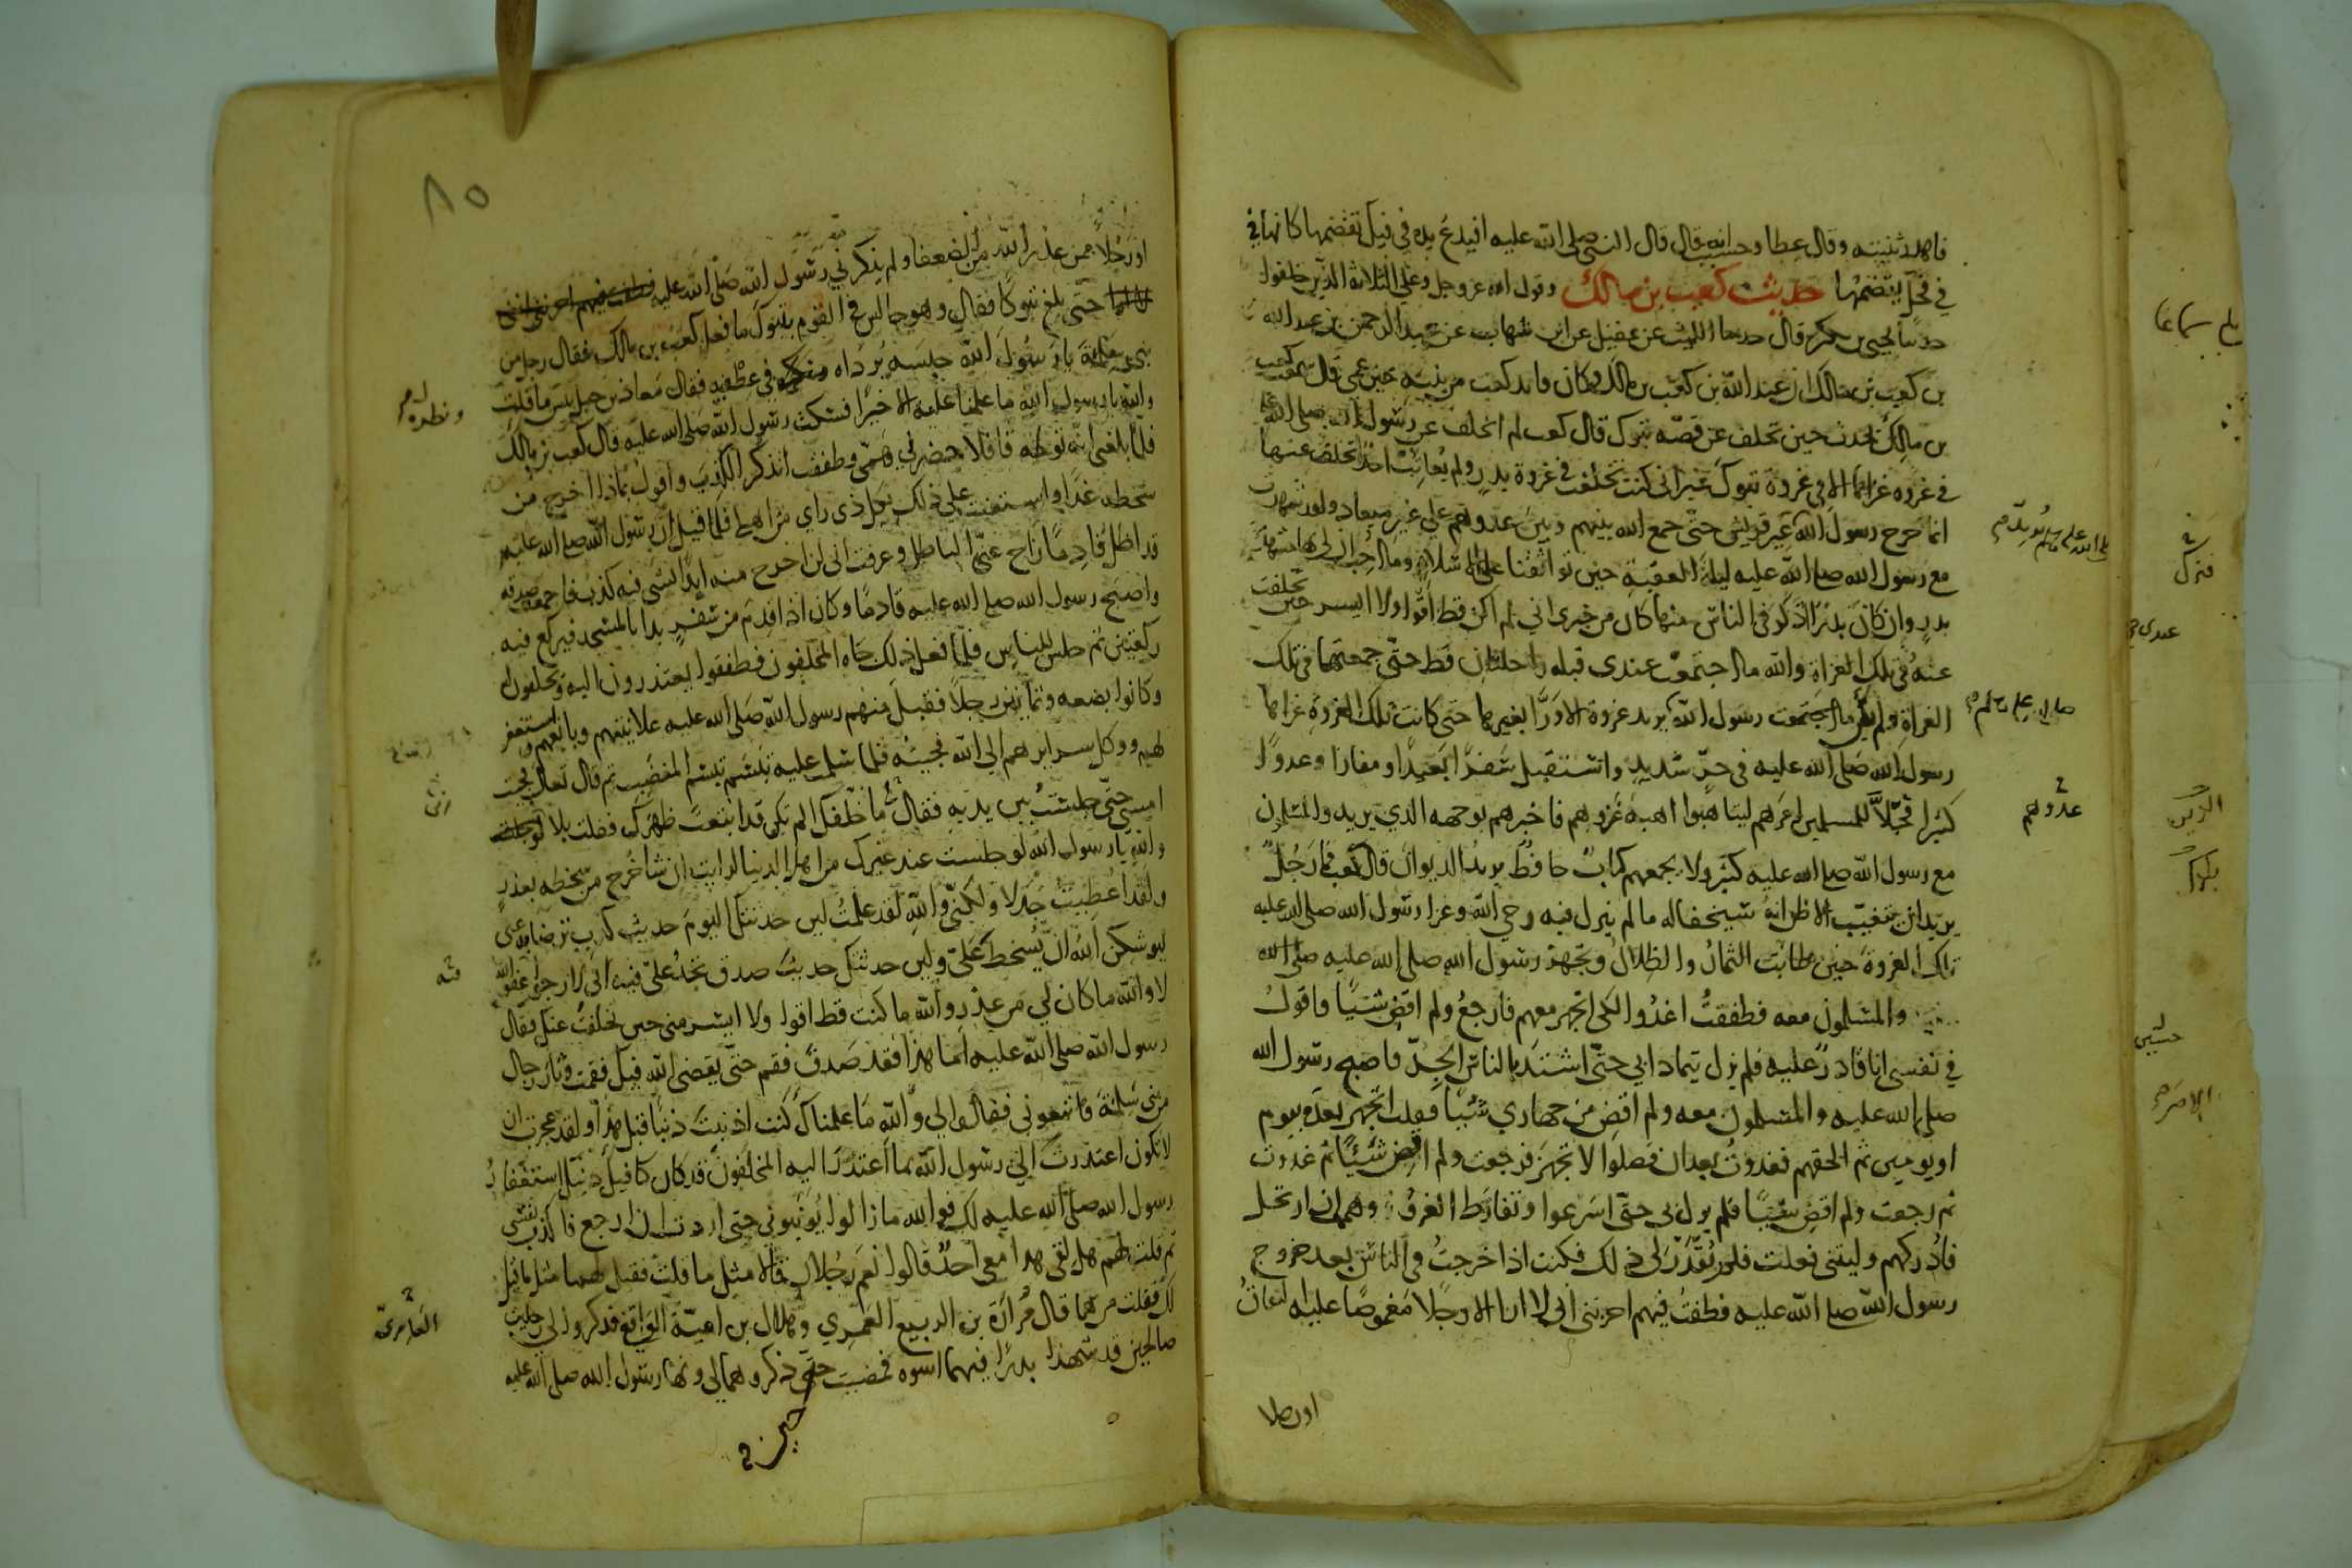 فاهدر ثنيته وقال عطا وحسبت انه قال قال النبي صلى الله عليه افيدع يده في فيك تقضمها كانها في
في فحل يقضمها حديث كعب بن مالك وقول الله عز وجل وعلى الثلاثة الذين خلفوا
حدثنا يحيى بن بكير قال حدثنا الليث عن عقيل عن ابن شهاب عن عبد الرحمن بن عبد الله
بن كعب بن مالك ان عبد الله بن كعب بن مالك وكان قائد كعب من بنيه حين عمي قال سمعت كعب
بن مالك يحدث حين تخلف عن قصة تبوك قال كعب لم اتخلف عن رسول الله صلى الله عليه
في غزوة غزاها الا في غزوة تبوك غير اني كنت تخلفت في غزوة بدر ولم يعاتب احدا تخلف عنها
انما خرج رسول الله عير قريش حتى جمع الله بينهم وبين عدوهم على غير ميعاد ولقد شهدت
مع رسول الله صلى الله عليه ليلة العقبة حين تواثقنا على الاسلام وما احب ان لي بها مشهد
بدر وان كان بدر اذكر في الناس منها كان من خبري اني لم اكن قط اقوا ولا ايسر حين تخلفت
عنه في تلك الغزاة والله ما اجتمعت عندي قبله راحلتان قط حتى جمعتهما في تلك
الغزاة ولم يكن رسول الله يريد غزوة الا ورا بغيرها حتى كانت تلك الغزوة غزاها
رسول الله صلى الله عليه في حر شديد واستقبل سفرا بعيدا ومفازا وعدوا
كثيرا فجلا للمسلمين امرهم ليتاهبوا اهبة غزوهم فاخبرهم بوجهه الذي يريد والمسلمون
مع رسول الله صلى الله عليه كثير ولا يجمعهم كتاب حافظ يريد الديوان قال كعب فما رجل
يريد ان يتغيب الا ظن انه سيخفا له ما لم ينزل فيه وحي الله وغزا رسول الله صلى الله عليه
تلك الغزوة حين طابت الثمار والظلال وتجهز رسول الله صلى الله عليه صلى الله
والمسلمون معه فطفقت اغدوا لكي اتجهز معهم فارجع ولم اقض شيئا فاقول
في نفسي انا قادر عليه فلم يزل يتمادا بي حتى اشتد بالناس الجد فاصبح رسول الله
صلى الله عليه والمسلمون معه ولم اقض من جهازي شيئا فقلت اتجهز بعده بيوم
او يومين ثم الحقهم فغدوت بعد ان فصلوا لاتجهز فرجعت ولم اقض شيئا ثم غدوت
ثم رجعت ولم اقض شيئا فلم يزل بي حتى اسرعوا وتفارط الغزو وهممت ان ارتحل
فادركهم وليتني فعلت فلم يقدر لي ذلك فكنت اذا خرجت في الناس بعد خروج
رسول الله صلى الله عليه فطفت فيهم احزنني اني لا ارا الا رجلا مغموصا عليه النفاق
عدوهم
او رجلا
٨٥
او رجلا ممن عذر الله من الضعفا ولم يذكرني رسول الله صلى الله عليه
حتى بلغ تبوكا فقال وهو جالس في القوم بتبوك ما فعل كعب بن مالك فقال رجل من
بني سلمة يا رسول الله حبسه برداه في عطفيه فقال معاذ بن جبل بئس ما قلت
والله يا رسول الله ما علمنا عليه الا خيرا فسكت رسول الله صلى الله عليه قال كعب بن مالك
فلما بلغني انه توجه قافلا حضرني همي وطفقت اتذكر الكذب واقول بماذا اخرج من
سخطه غدا واستعنت على ذلك بكل ذي راي من اهلي فلما قيل ان رسول الله صلى الله عليه
قد اظل قادما زاح عني الباطل وعرفت اني لن اخرج منه ابدا بشي فيه كذب فاجمعت صدقه
واصبح رسول الله صلى الله عليه قادما وكان اذا قدم من سفر بدا بالمسجد فيركع فيه
ركعتين ثم جلس للناس فلما فعل ذلك جاه المخلفون فطفقوا يعتذرون اليه ويحلفون له
وكانوا بضعه وثمانين رجلا فقبل منهم رسول الله صلى الله عليه علانيتهم وبايعهم واستغفر
لهم ووكل سرايرهم الى الله فجيته فلما سلمت عليه تبسم تبسم المغضب ثم قال تعال فجيت
امشي حتى جلست بين يديه فقال ما خلفك الم تكن قد ابتعت ظهرك فقلت بلا
والله يا رسول الله لو جلست عند غيرك من اهل الدنيا لرايت ان ساخرج من سخطه بعذر
ولقد اعطيت جدلا ولكني والله لقد علمت لين حدثتك اليوم حديث كذب ترضا به عني
ليوشكن الله ان يسخطك علي ولين حدثتك حديث صدق تجد علي فيه اني لارجوا عفو الله
لا والله ما كان لي من عذر والله ما كنت قط اقوا ولا ايسر مني حين تخلفت عنك فقال
رسول الله صلى الله عليه اما هذا فقد صدق فقم حتى يقضي الله فيك فقمت وثار رجال
من بني سلمة فاتبعوني فقالوا لي والله ما علمناك كنت اذنبت ذنبا قبل هذا ولقد عجزت ان
لا تكون اعتذرت الى رسول الله بما اعتذر اليه المخلفون قد كان كافيك ذنبك استغفار
رسول الله صلى الله عليه لك فوالله ما زالوا يؤنبوني حتى اردت ان ارجع فاكذب نفسي
ثم قلت لهم هل لقي هذا معي احد قالوا نعم رجلان قالا مثل ما قلت فقيل لهما مثل ما قيل
لك فقلت من هما قال مرارة بن الربيع العمري وهلال بن امية الواقفي فذكروا لي رجلين
صالحين قد شهدا بدرا فيهما اسوه فمضيت حين ذكروهما لي ونها رسول الله صلى الله عليه
العامري
حين